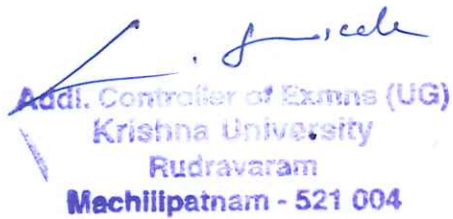 Addl. Controller of Exmns (UG)
Krishna University
Rudravaram
Machilipatnam - 521 004